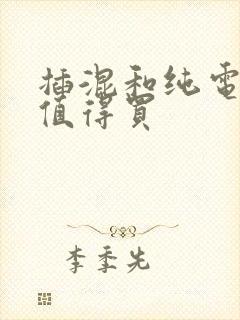 插混和纯电
值得买
李季先